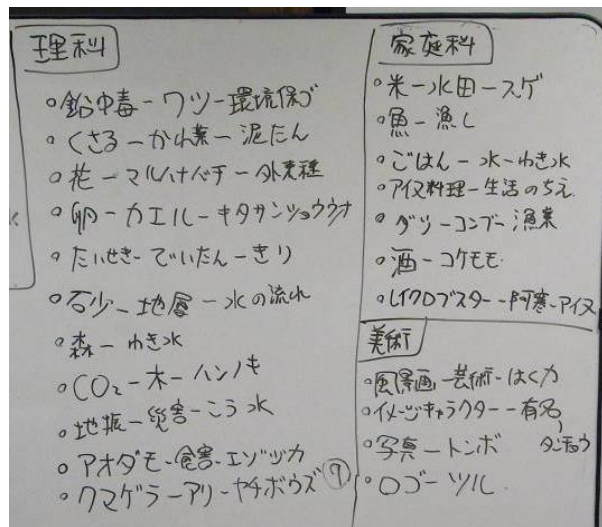 理科
○鉛中毒ーワシー環境保ゴ
○くさるーかれ葉ー泥たん
○花ーマルハナバチー外来種
○卵ーカエルーキタサンショウウオ
○たいせきーでいたんーきり
○石少ー地層ー水の流れ
○森ーわき水
○CO₂ー木ーハンノキ
○地振ー災害ーこう水
○アオダモー食害ーエゾシカ
○クマゲラーアリーヤチボウズ
家庭科
○米ー水田ースゲ
○魚ー漁し
○ごはんー水ーわき水
○アイヌ料理ー生活のちえ
○ダシーコンブー漁業
○酒ーコケモモ
○レイクロブスターー阿寒ーアイヌ
美術
○風景画ー芸術ーはく力
○イメージキャラクターー有名
○写真ートンボ
タンチョウ
○ロゴーツル